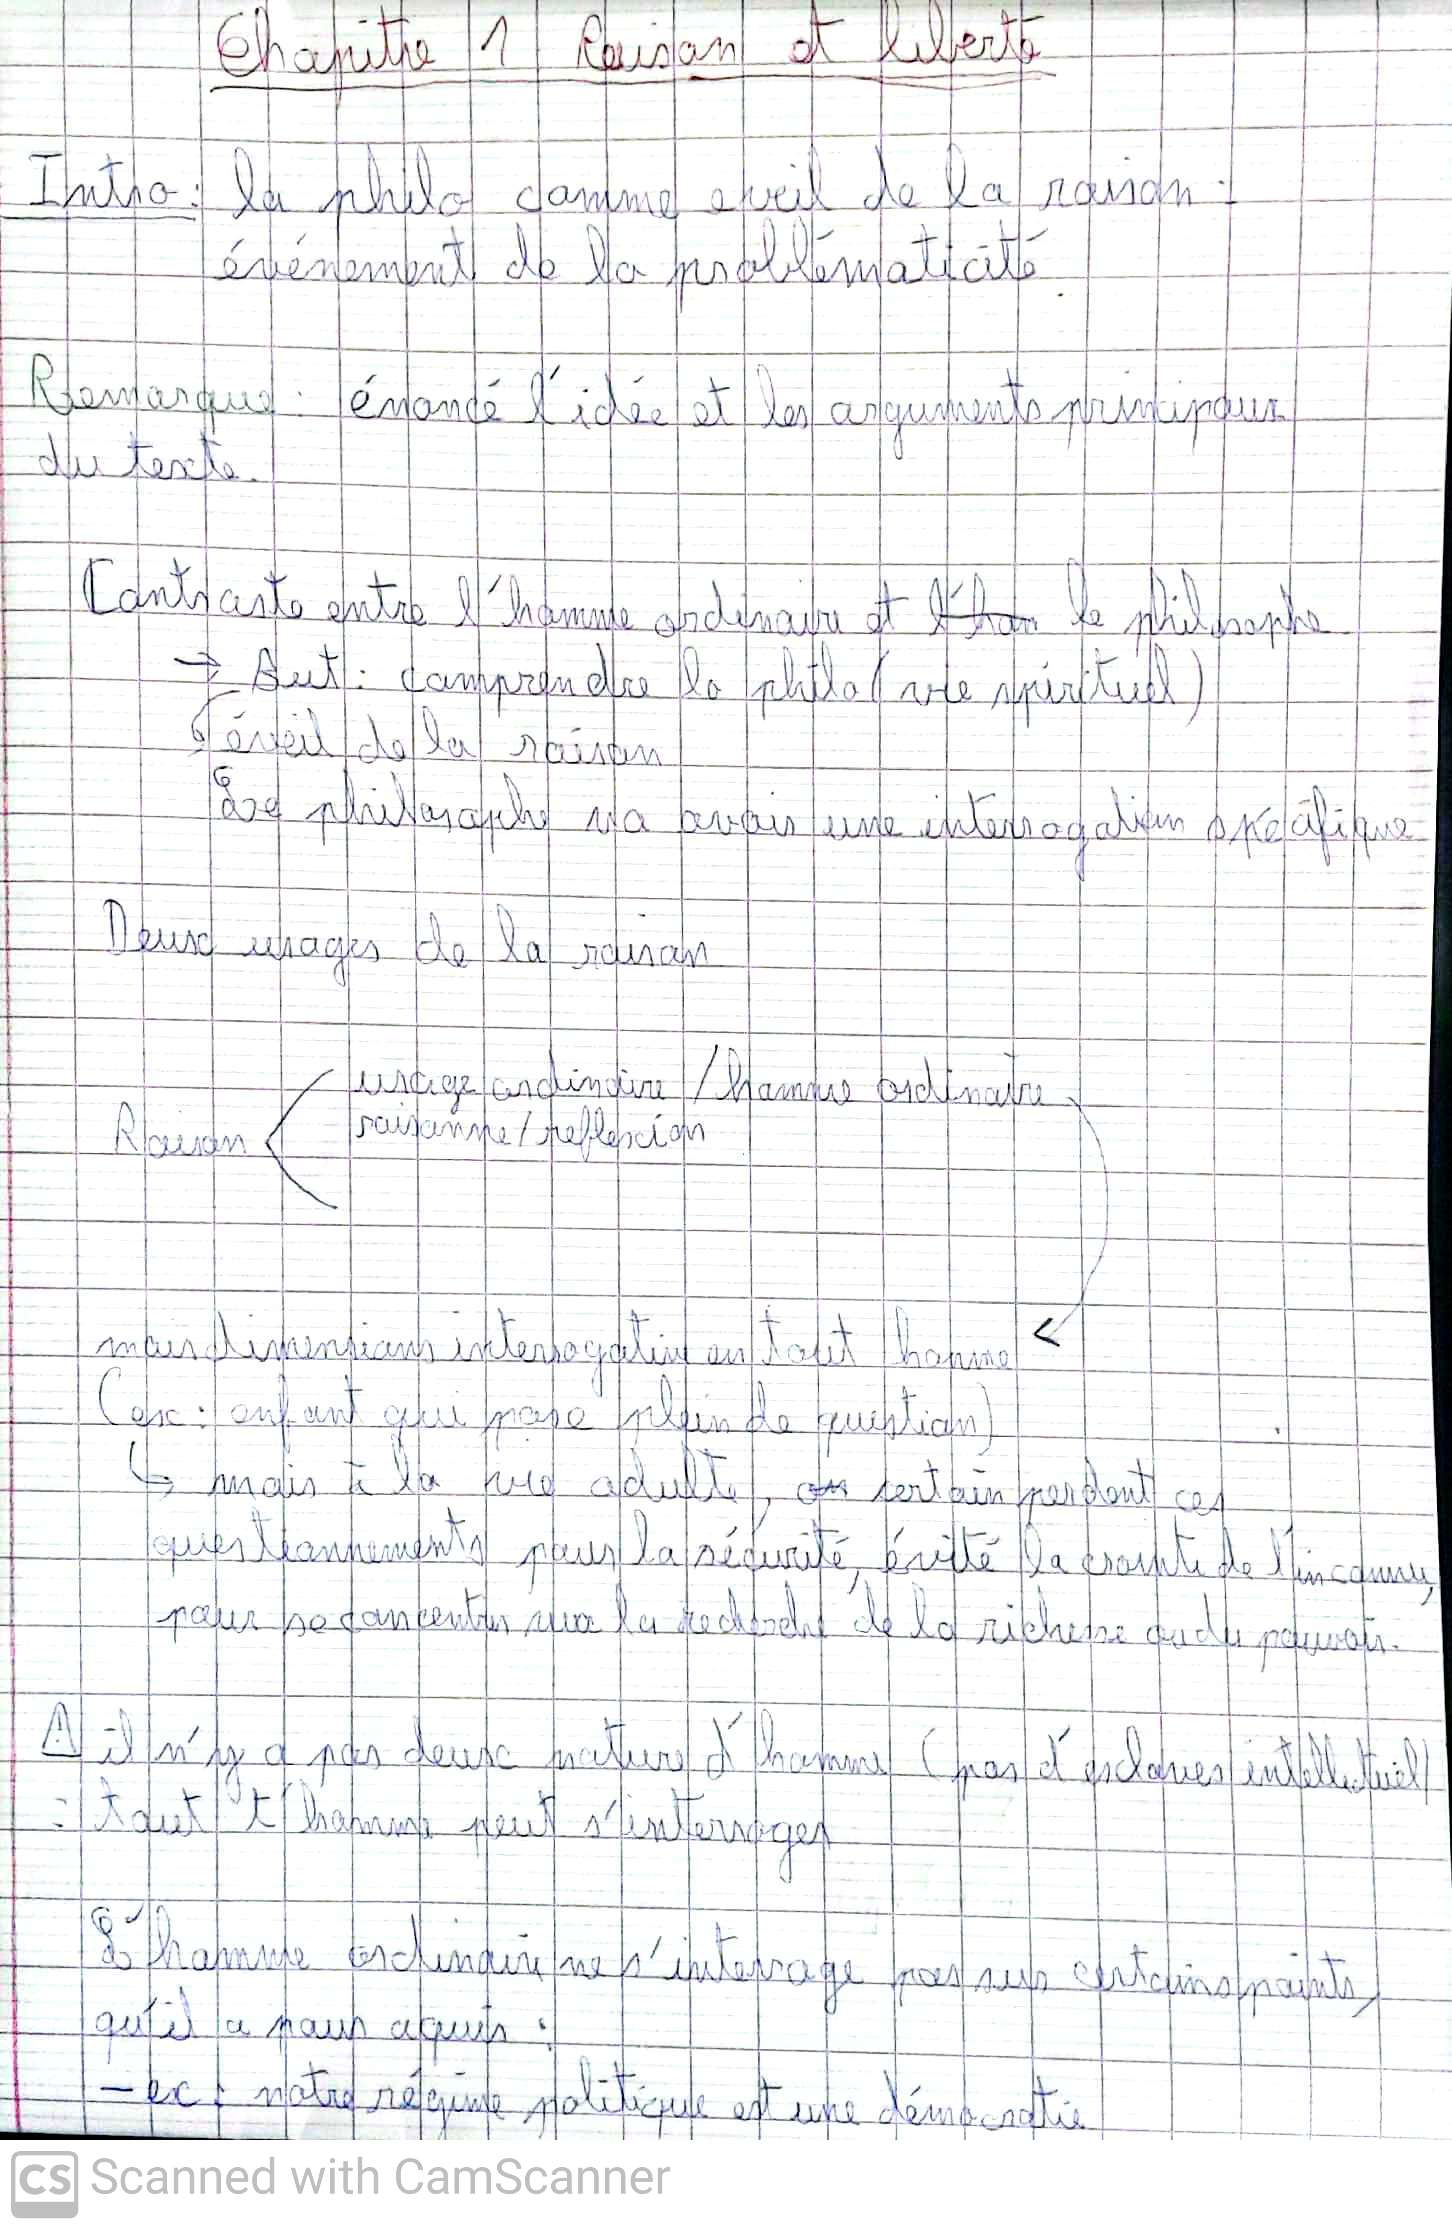 Chapitre 1 Raison et liberté
Intro : la philo comme eveil de la raison :
événement de la problématicité.
Remarque : énoncé l'idée et les arguments principaux
du texte.
Contraste entre l'homme ordinaire et l'hom le philosophe
→ But : comprendre la philo (vie spirituel)
éveil de la raison
Le philosophe va avoir une interrogation spécifique
Deux usages de la raison
usage ordinaire / homme ordinaire
Raison
raisonne / reflexion
mais dimensions interrogative en tout homme
(ex : enfant qui pose plein de question)
↳ mais à la vie adulte, on certain perdent ces
questionnements pour la sécurité, évité la crainte de l'inconnu,
pour se concentrer sur la recherche de la richesse ou du pouvoir.
⚠ il n'y a pas deux nature d'homme (pas d'esclaves intellectuel)
: tout l'homme peut s'interroger
L'homme ordinaire ne s'interroge pas sur certains points,
qu'il a pour aquis :
- ex : notre régime politique est une démocratie
CS Scanned with CamScanner